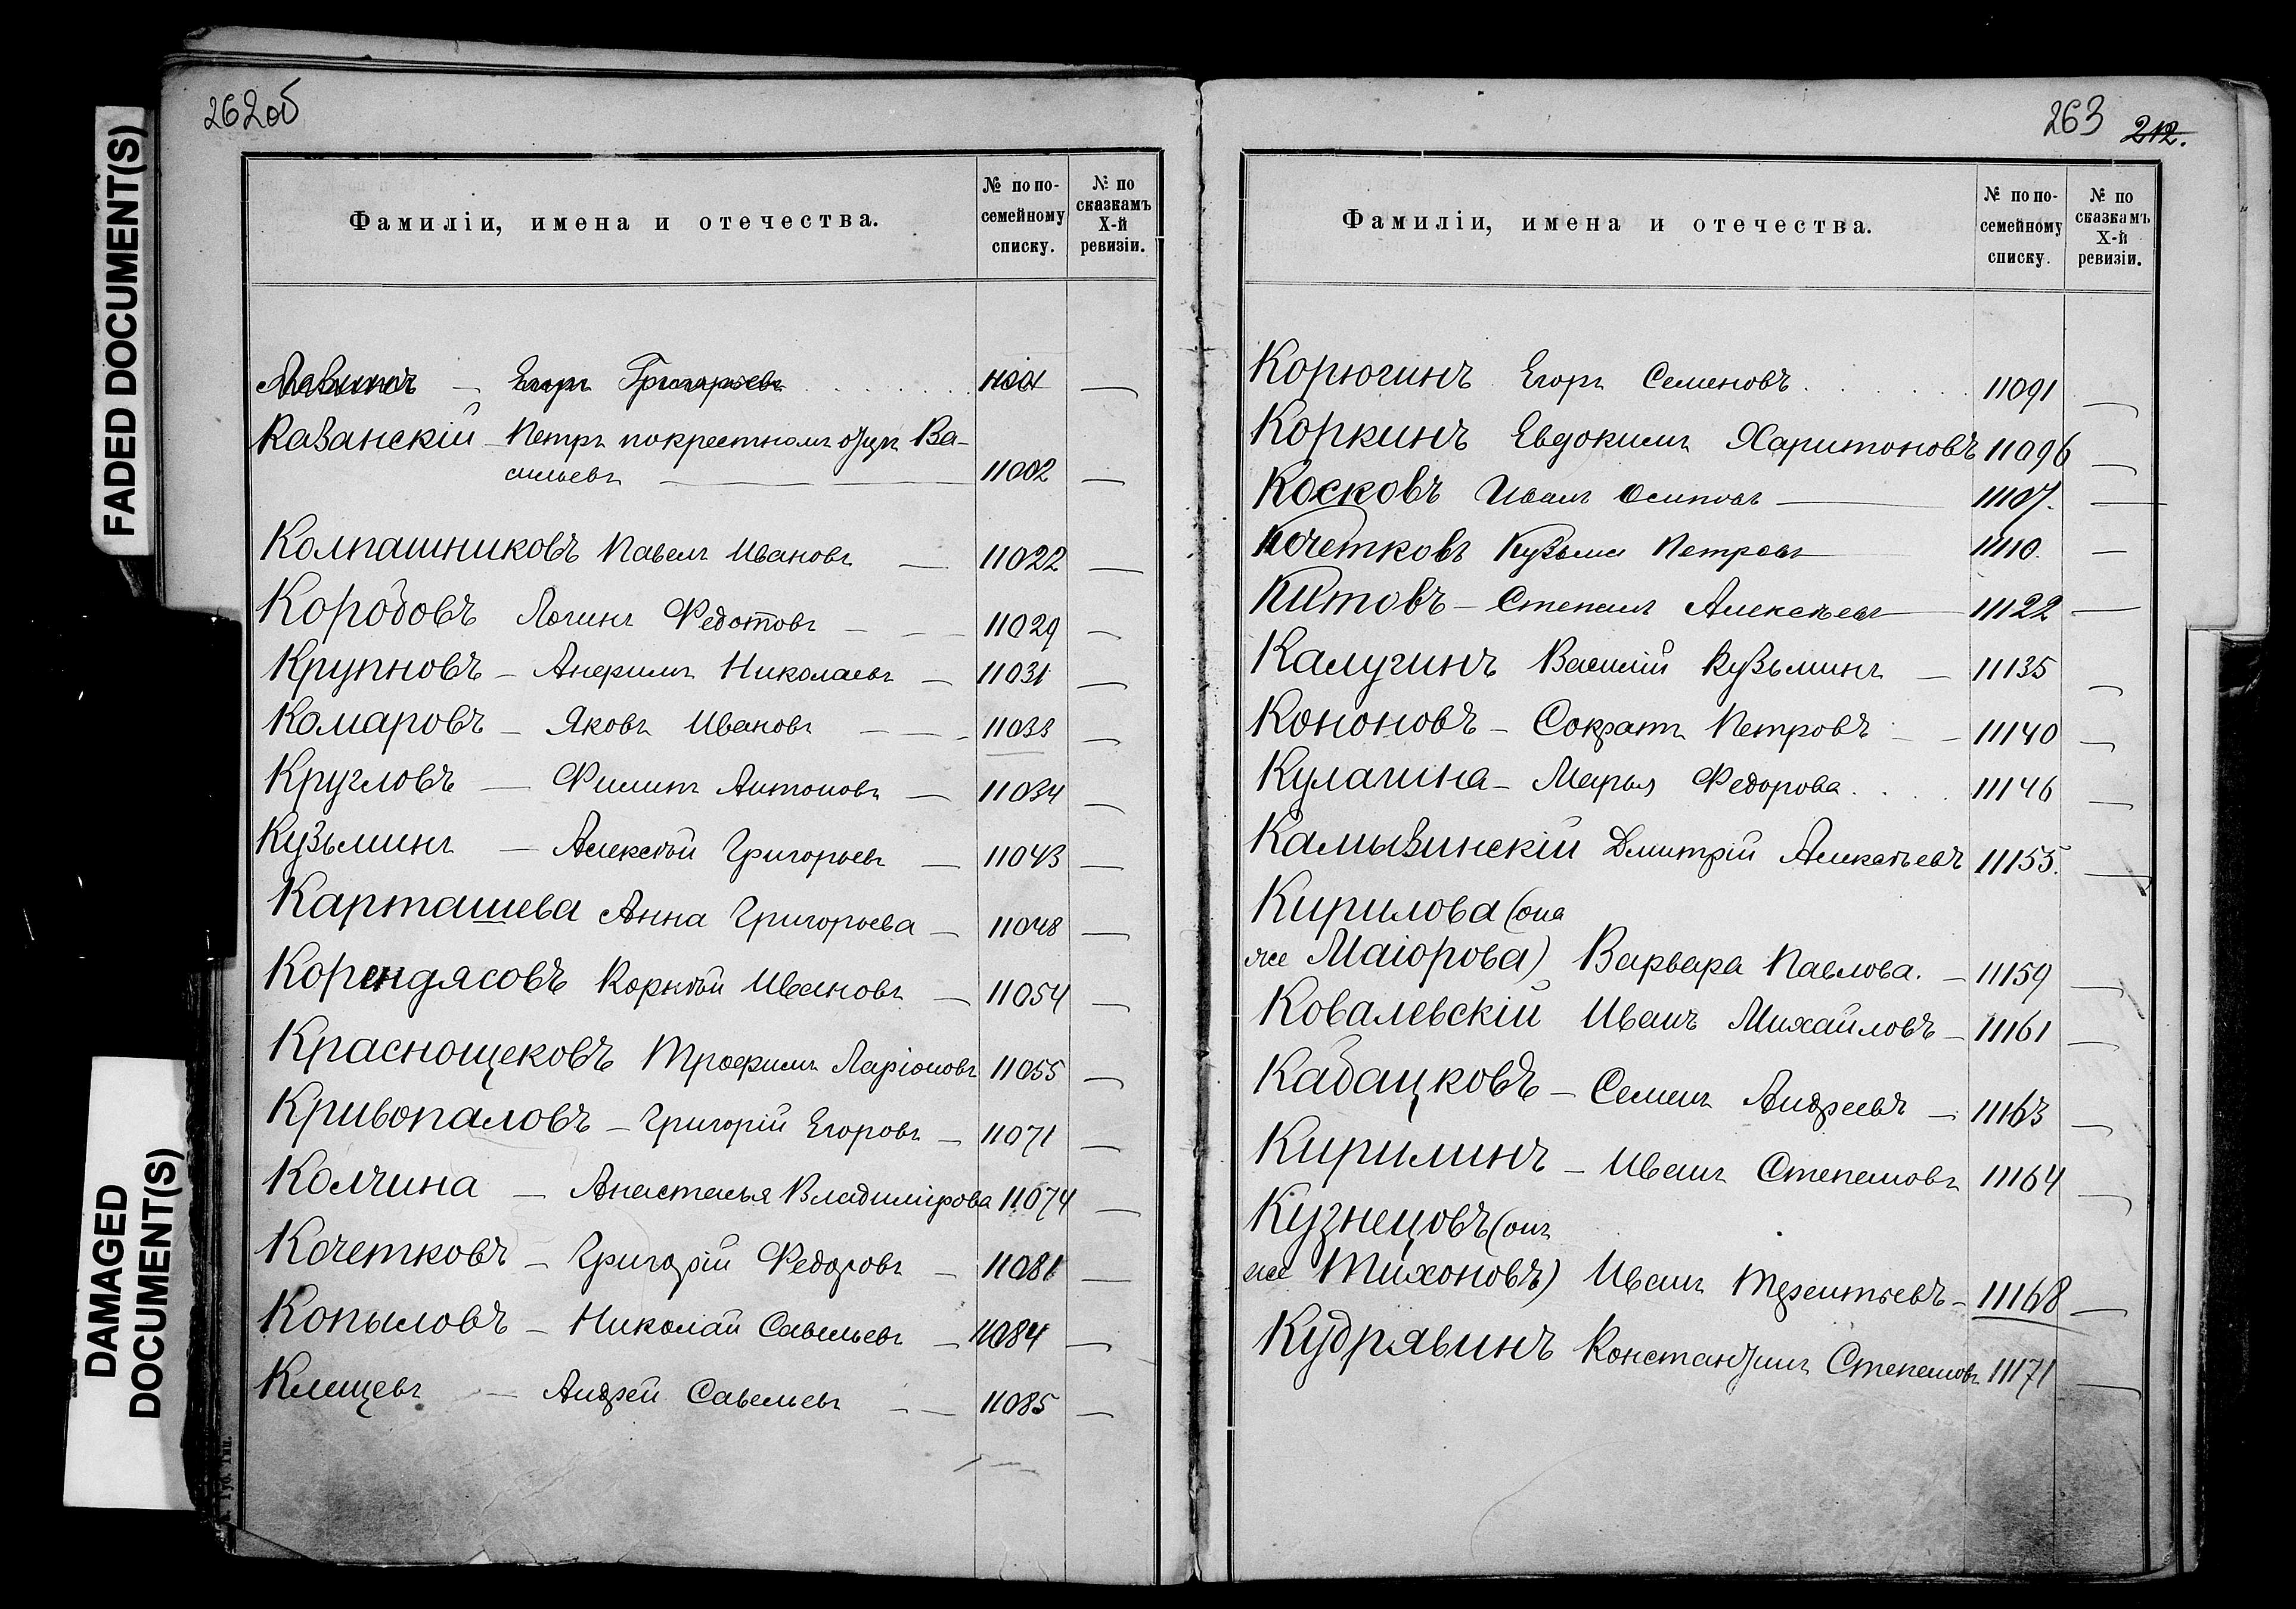 FADED DOCUMENT(S)
DAMAGED
DOCUMENT(S)
262об
Фамиліи, имена и отечества.
№ по по-
семейному
списку.
№ по
сказкамъ
X-й
ревизіи.
Егоръ Григорьевъ
Казанскій - Петръ по крестному отцу Ва-
сильевъ — 11002 —
Колпашниковъ Павелъ Ивановъ — 11022 —
Коробовъ Логинъ Федотовъ — 11029 —
Крупновъ - Анфимъ Николаевъ — 11031 —
Комаровъ - Яковъ Ивановъ — 11033 —
Кругловъ — Филипъ Антоновъ — 11034 —
Кузьминъ — Алексѣй Григорьевъ — 11043 —
Карташева Анна Григорьева — 11048 —
Корендясовъ Корнѣй Ивановъ — 11054 —
Краснощековъ Трофимъ Ларіоновъ 11055 —
Кривопаловъ - Григорій Егоровъ — 11071 —
Колчина — Анастасья Владимірова 11074 —
Кочетковъ - Григорій Федоровъ — 11081 —
Копыловъ - Николай Савельевъ — 11084 —
Клещевъ — Андрей Савельевъ — 11085 —
263 212.
Фамиліи, имена и отечества.
№ по по-
семейному
списку.
№ по
сказкамъ
X-й
ревизіи.
Корюгинъ Егоръ Семеновъ 11091 —
Коркинъ Евдокимъ Харитоновъ 11096 —
Косковъ Иванъ Осиповъ — 11107. —
Кочетковъ Кузьма Петровъ — 11110. —
Китовъ - Степанъ Алексѣевъ — 11122 —
Калугинъ Василій Кузьминъ — 11135 —
Кононовъ - Сократъ Петровъ — 11140 —
Кулагина - Марья Федорова 11146 —
Калмызинскій Дмитрій Алексѣевъ 11155. —
Кирилова (она
же Маіорова) Варвара Павлова. — 11159 —
Ковалевскій Иванъ Михайловъ — 11161 —
Кабацковъ - Семенъ Андреевъ — 11163 —
Кирилинъ - Иванъ Степановъ 11164 —
Кузнецовъ (онъ
же Тихоновъ) Иванъ Терентьевъ - 11168 —
Кудрявинъ Константинъ Степановъ 11171 —